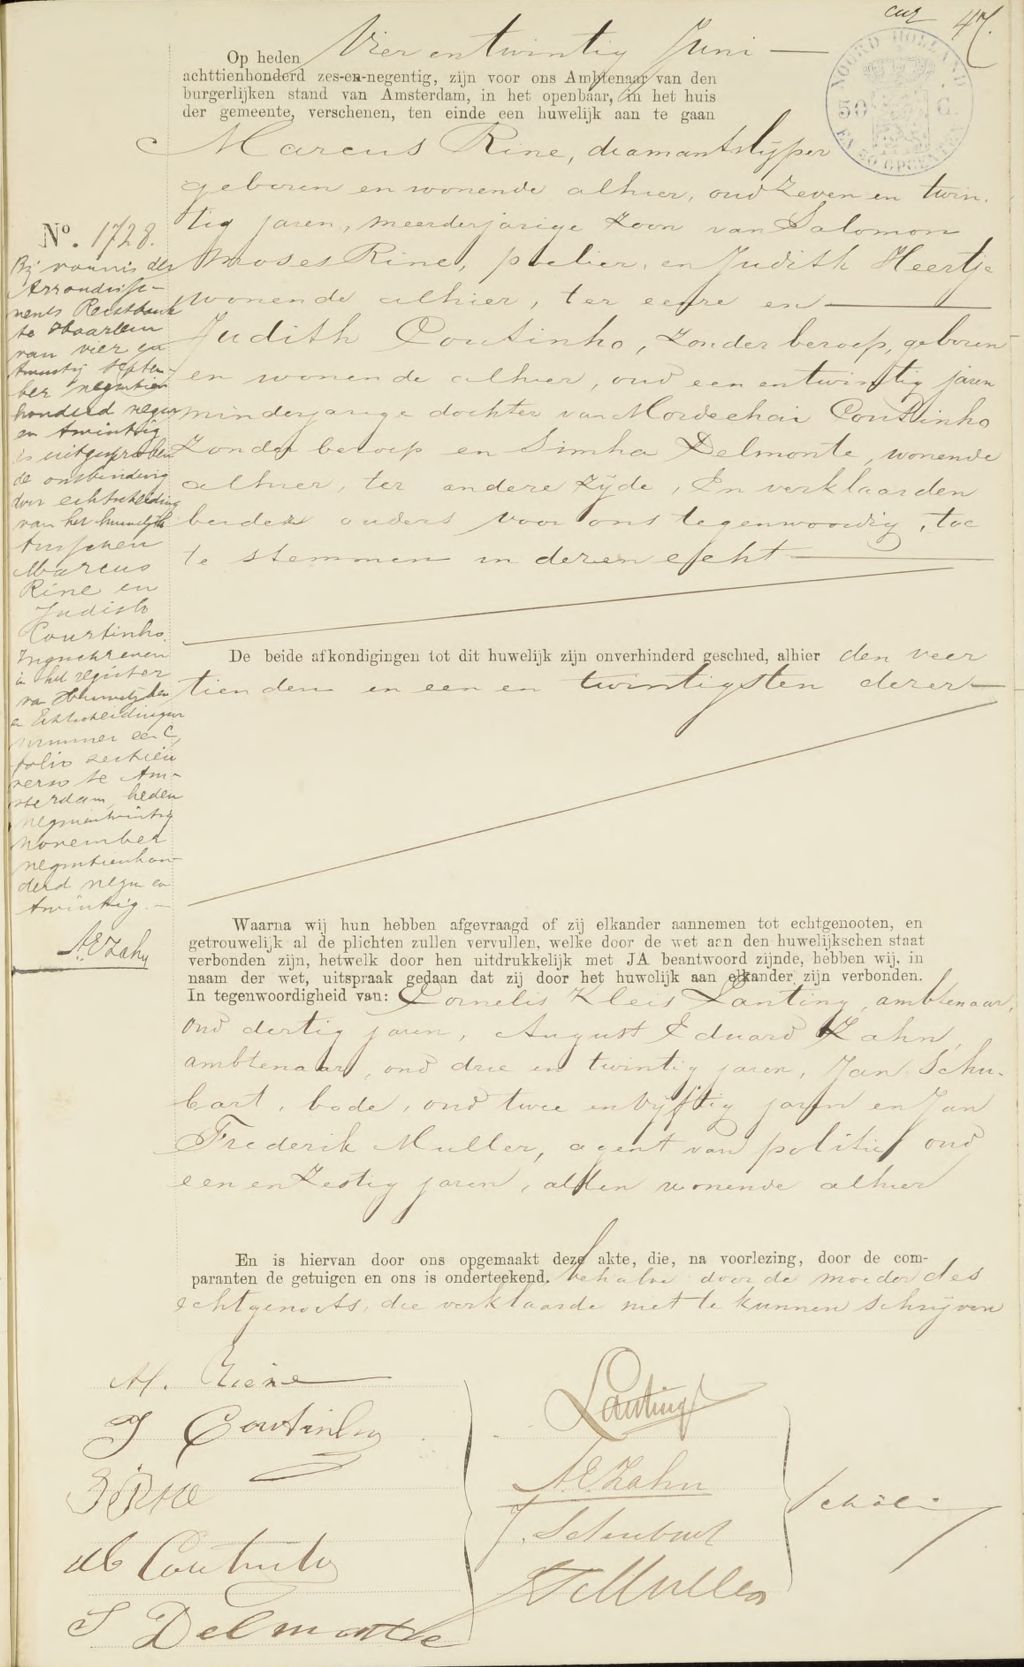 47.
NOORD HOLLAND
50 C.
EN 50 OPCENTEN
Op heden Vier en twintig Juni
achttienhonderd zes-en-negentig, zijn voor ons Ambtenaar van den
burgerlijken stand van Amsterdam, in het openbaar, in het huis
der gemeente, verschenen, ten einde een huwelijk aan te gaan
Marcus Rine, diamantslijper
geboren en wonende alhier, oud zeven en twin-
tig jaren, meerderjarige zoon van Salomon
Moses Rine, poelier, en Judith Heertje
wonende alhier, ter eenre en
Judith Coutinho, zonder beroep, geboren
en wonende alhier, oud een en twintig jaren
minderjarige dochter van Mordechai Coutinho
zonder beroep en Simha Delmonte, wonende
alhier, ter andere zijde, En verklaarden
beider ouders voor ons tegenwoordig, toe
te stemmen in dezen echt
No. 1728.
Bij vonnis der
Arrondisse-
ments Rechtbank
te Haarlem
van vier en
twintig Septem-
ber negentien
honderd negen
en twintig
is uitgesproken
de ontbinding
door echtscheiding
van het huwelijk
tusschen
Marcus
Rine en
Judith
Coutinho.
Ingeschreven
in het register
van Huwelijken
en Echtscheidingen
nummer een C,
folio zestien
verso te Am-
sterdam, heden
negenentwintig
November
negentienhon-
derd negen en
twintig.
A.E. Zahn
De beide afkondigingen tot dit huwelijk zijn onverhinderd geschied, alhier den veer
tienden en een en twintigsten dezer
Waarna wij hun hebben afgevraagd of zij elkander aannemen tot echtgenooten, en
getrouwelijk al de plichten zullen vervullen, welke door de wet aan den huwelijkschen staat
verbonden zijn, hetwelk door hen uitdrukkelijk met JA beantwoord zijnde, hebben wij, in
naam der wet, uitspraak gedaan dat zij door het huwelijk aan elkander zijn verbonden.
In tegenwoordigheid van: Cornelis Kleis Lanting, ambtenaar,
oud dertig jaren, August Eduard Zahn,
ambtenaar, oud drie en twintig jaren, Jan Schu-
bart, bode, oud twee en vijftig jaren en Jan
Frederik Muller, agent van politie, oud
een en zestig jaren, allen wonende alhier
En is hiervan door ons opgemaakt deze akte, die, na voorlezing, door de com-
paranten de getuigen en ons is onderteekend. behalve door de moeder des
echtgenoots, die verklaarde niet te kunnen schrijven
M. Riene
J Coutinho
S Rine
M Coutinho
S Delmonte
Lanting
A.E. Zahn
J. Schubart
J F Muller